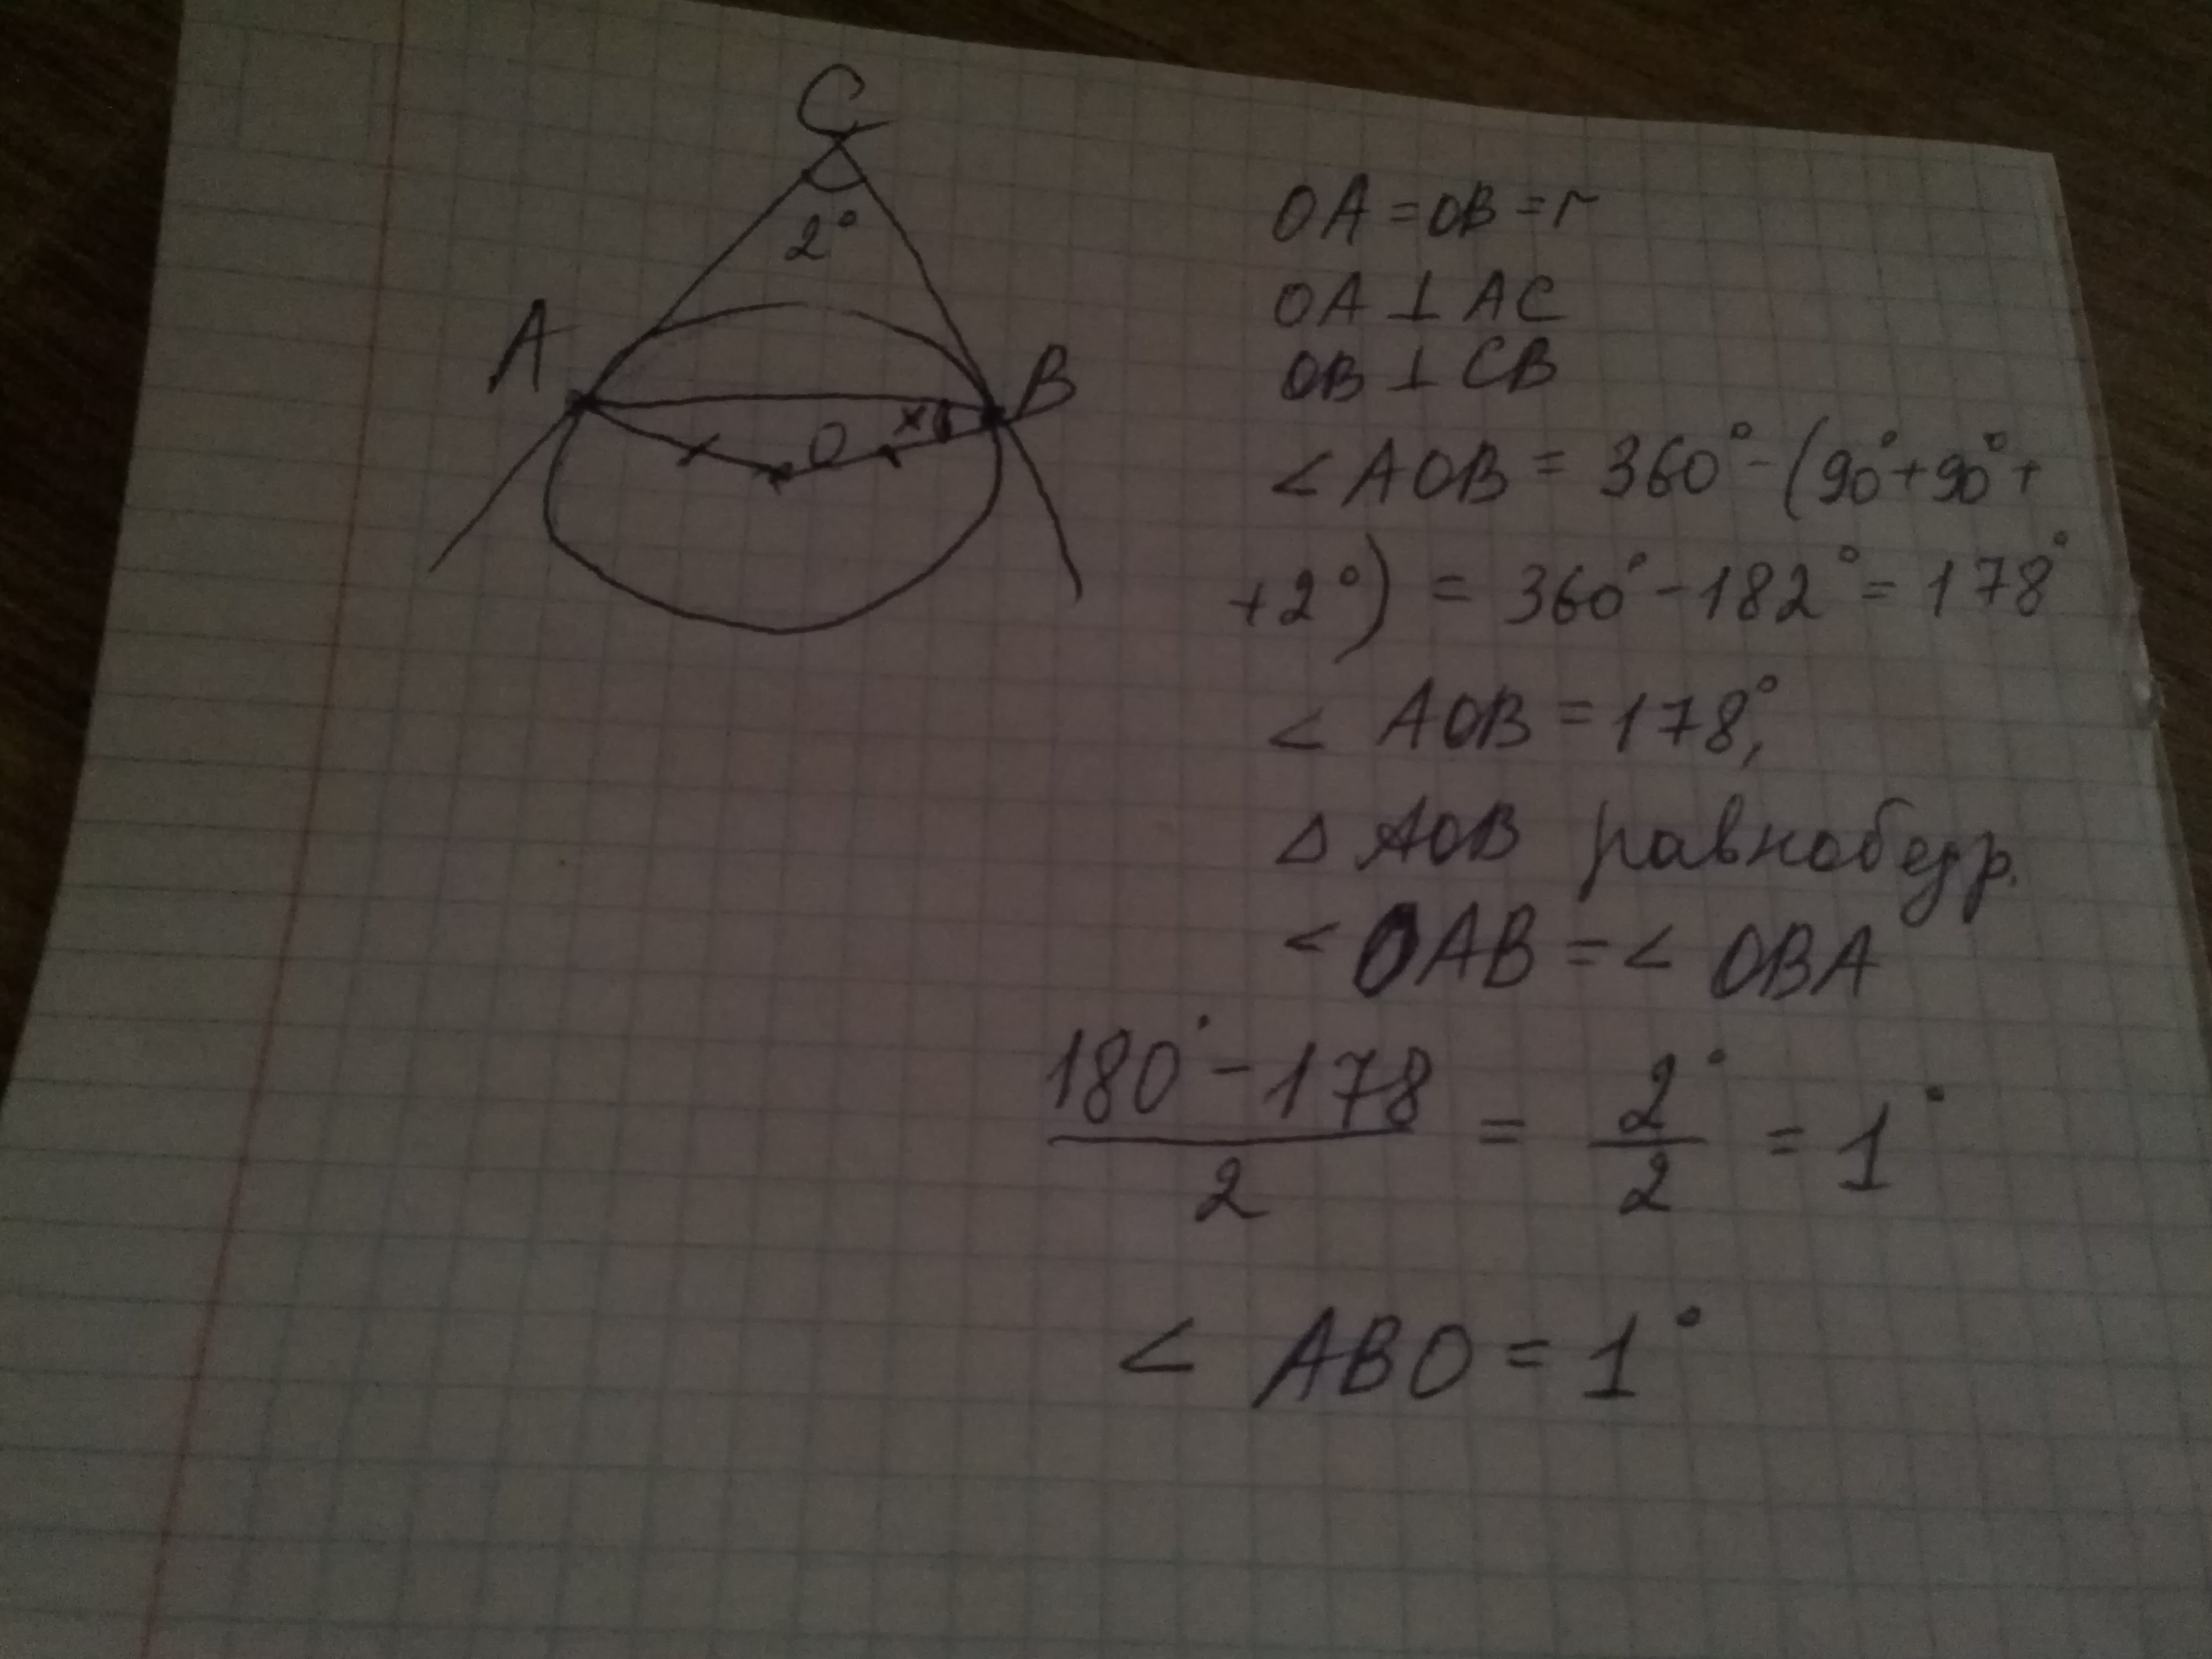 C
2°
A
B
O
x
OA = OB = r
OA ⊥ AC
OB ⊥ CB
< AOB = 360° - (90° + 90° +
+ 2°) = 360° - 182° = 178°
< AOB = 178°,
Δ AOB равнобедр.
< OAB = < OBA
180° - 178 / 2 = 2° / 2 = 1°
< ABO = 1°